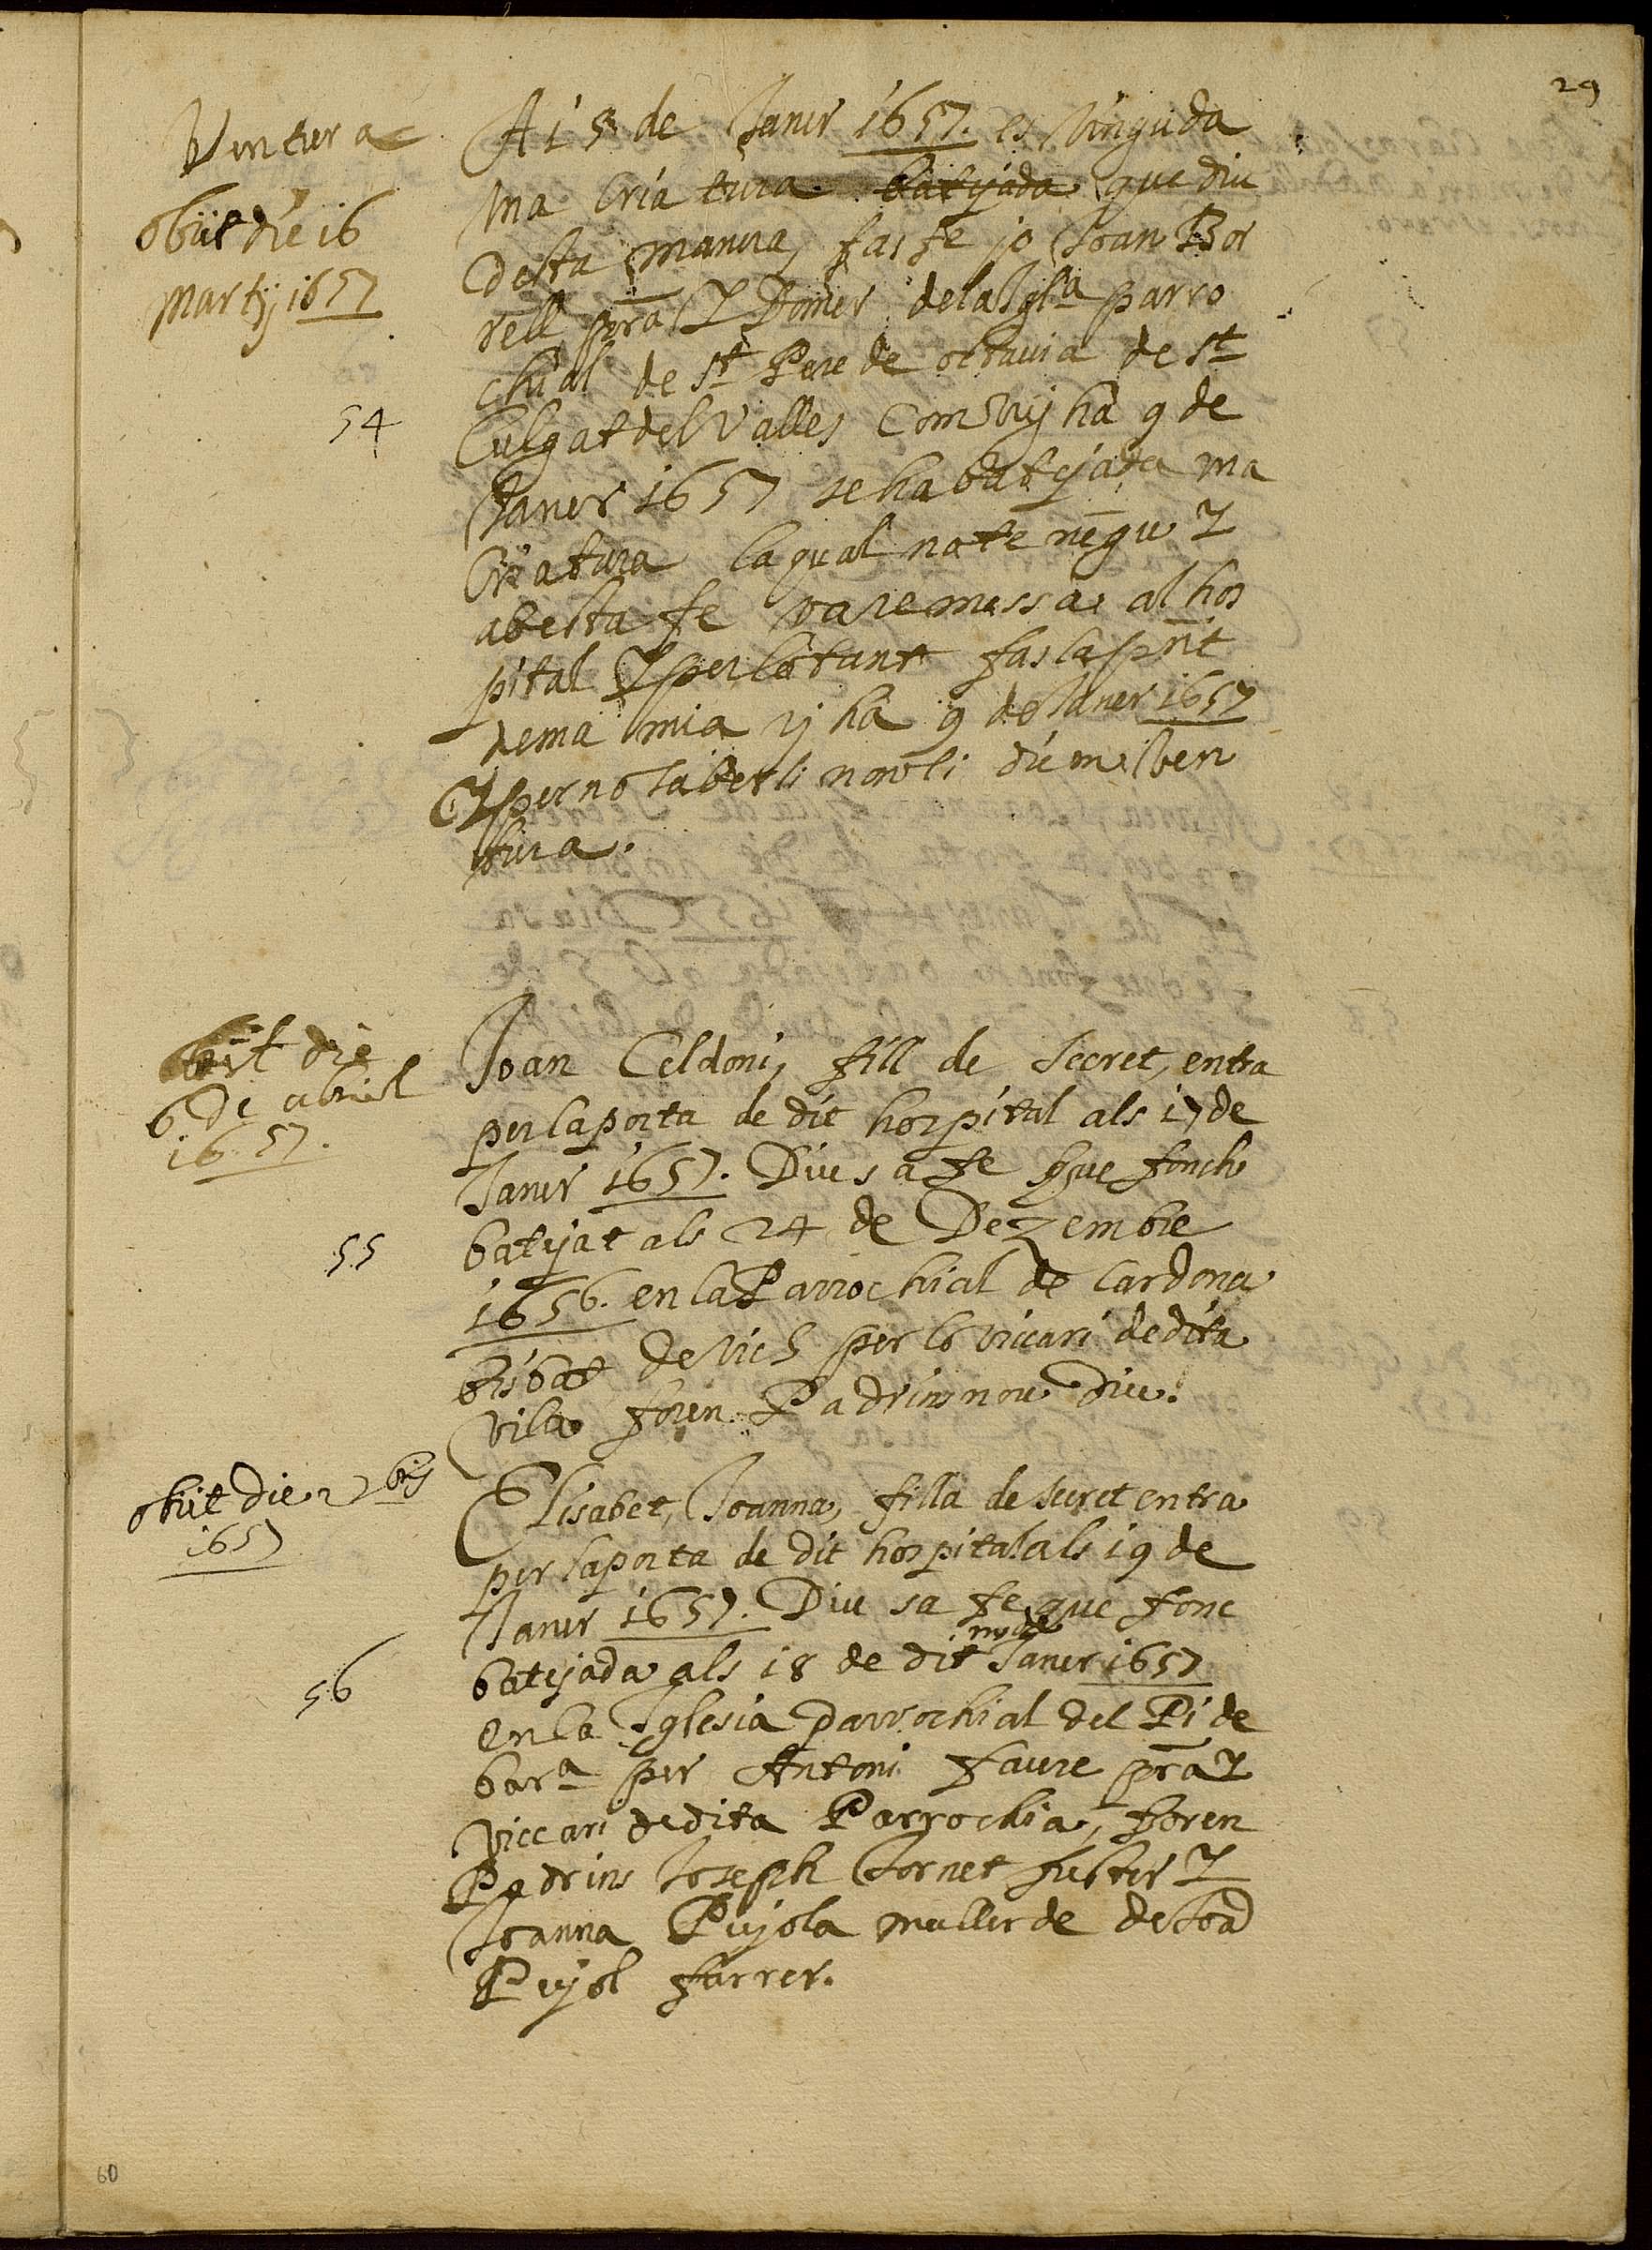 29
Ventura
obiit die 16
Martij 1657
54
A 15 de Janer 1657. es vinguda
una criatura batejada que diu
desta manera, fas fe jo Joan Bor
rell pr̄a Y Domer dela Igl.ª parro
chial de S.t Pere de octavia de S.t
Culgat del Valles Com vuy ha 9 de
Janer 1657 se ha batejada una
Criatura laqual note nēgu Y
ab esta fe va remessa al hos
pital Y per lo tant fas la pn̄t
de ma mia vj ha 9 de Janer 1657
Y per no saberli nom li diem Ven
tura.
obiit die
6 De abril
1657.
55
Joan Celdoni, fill de Secret, entra
per la porta de dit hospital als 17 de
Janer 1657. Diu s a fe que fonch
batejat als 24 de Dezembre
1656. en la Parrochial de Cardona
bisbat de Vich per lo viccari de dita
vila foren Padrins nou diu.
obiit die 2 bris
1657
56
Elisabet, Joanna, filla de secret entra
per la porta de dit hospital als 19 de
Janer 1657. Diu sa fe que fonc
batejada als 18 de dit Janer 1657
en la Iglesia parrochial del Pi de
bar.ª per Antoni Faure pr̄a Y
viccari de dita Parrochia, foren
Padrins Joseph Tornet fuster Y
Joanna Pujola muller de de Joā
Pujol farrer.
60